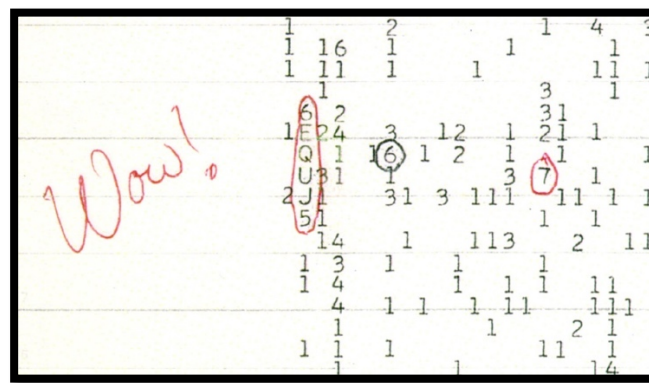 1 2 1 4 3
1 16 1 1 1
1 11 1 1 11
1 3 1
6 2 31
1 E24 3 12 1 21 1
Q 1 16 1 2 1 1 1
Wow!
U31 1 3 7 1
2 J1 31 3 111 11 1 1
51 1 1
14 1 113 2 11
1 3 1 1 1
1 4 1 1 1 11
4 1 1 1 11 111
1 1 2 1
1 1 1 11 1
1 1 4